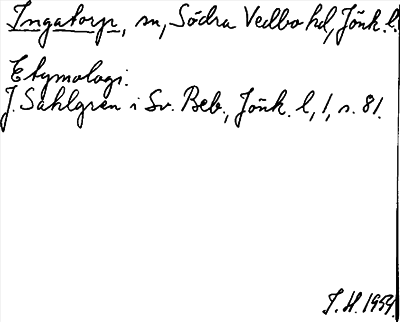 Ingatorp, sn, Södra Vedbo hd, Jönk. l.
Etymologi.
J. Sahlgren i Sv. Beb., Jönk. l, 1, s. 81.
I. H. 1954.